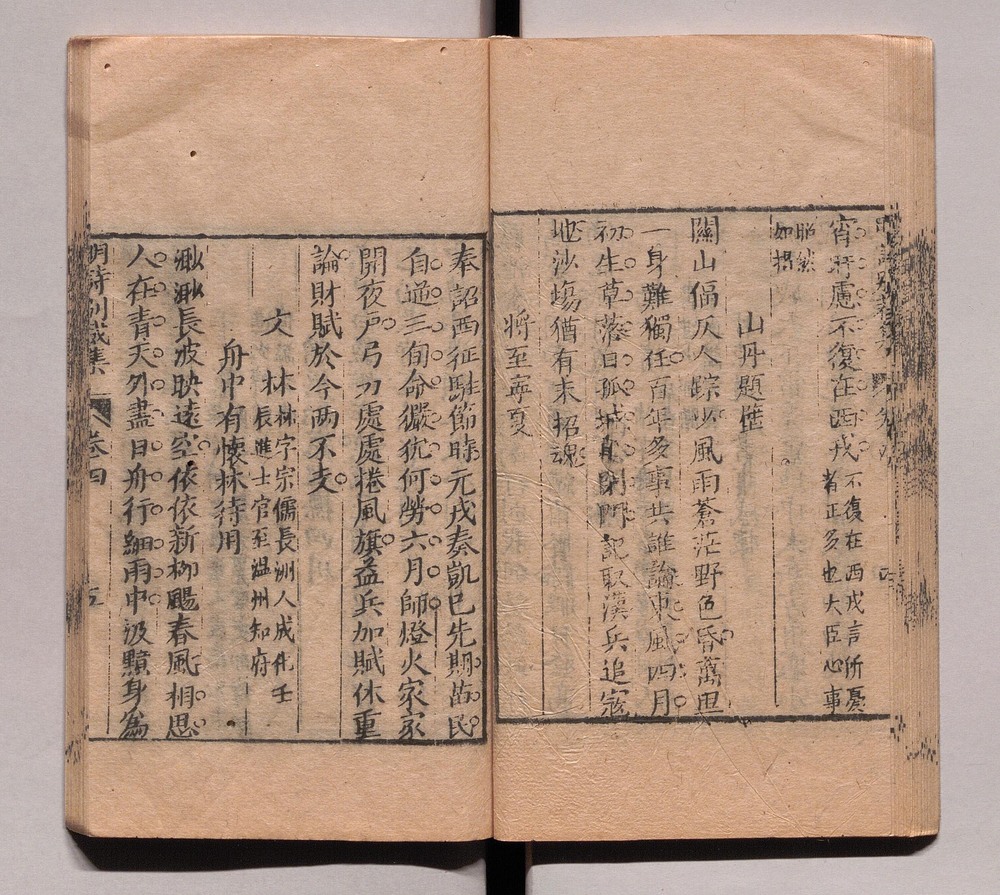 宵旰慮不復在西戎不復在西戎言所憂
者正多也大臣心事
昭然
如揭
山丹題壁
關山偪仄人踪少風雨蒼茫野色昏萬里
一身難獨任百年多事共誰論東風四月
初生草落日孤城早閉門記取漢兵追寇
地沙塲猶有未招魂
將至寧夏
奉詔西征駐節時元戎奏凱已先期苗民
自逆三旬命玁狁何勞六月師燈火家家
開夜戶弓刀處處捲風旗益兵加賦休重
論財賦於今兩不支
文林林字宗儒長洲人成化壬
辰進士官至温州知府
舟中有懷林待用
渺渺長波映遠空依依新柳颺春風相思
人在青天外盡日舟行細雨中汲黯身爲
明詩別裁集
卷四
五